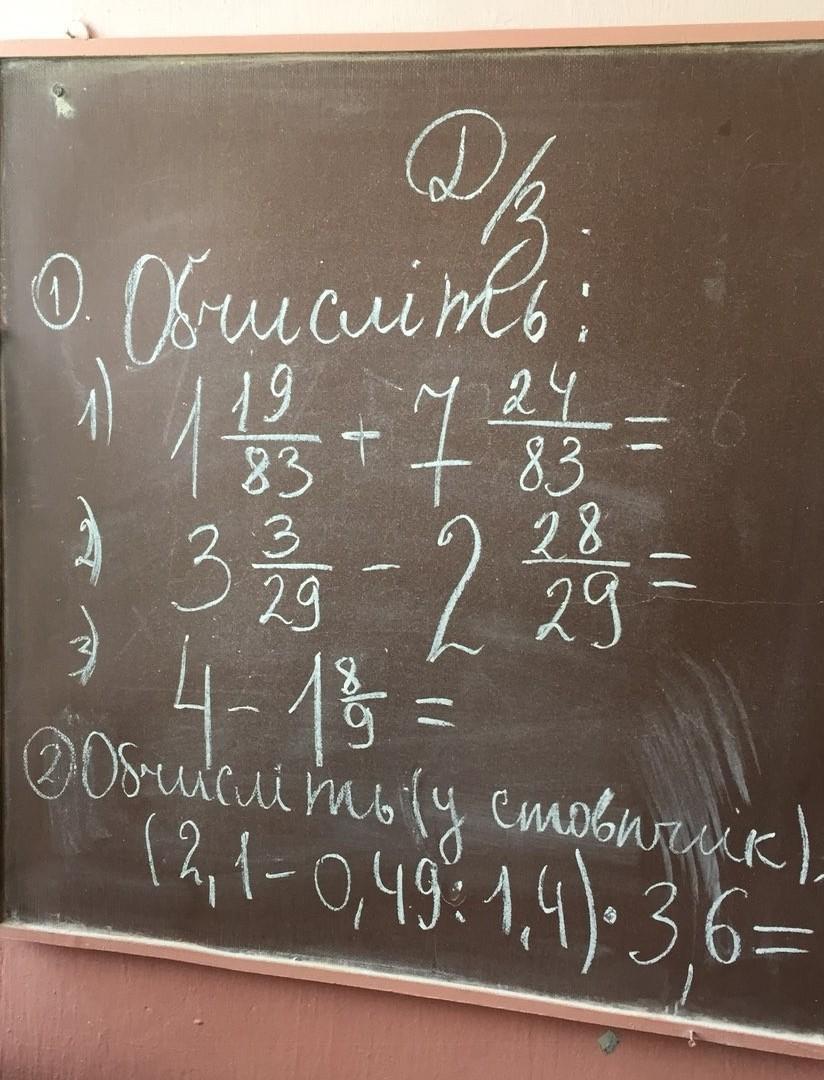 Д/з:
① Обчисліть:
1) 1 19/83 + 7 24/83 =
2) 3 3/29 - 2 28/29 =
3) 4 - 1 8/9 =
② Обчисліть (у стовпчик).
(2,1 - 0,49 : 1,4) · 3,6 =